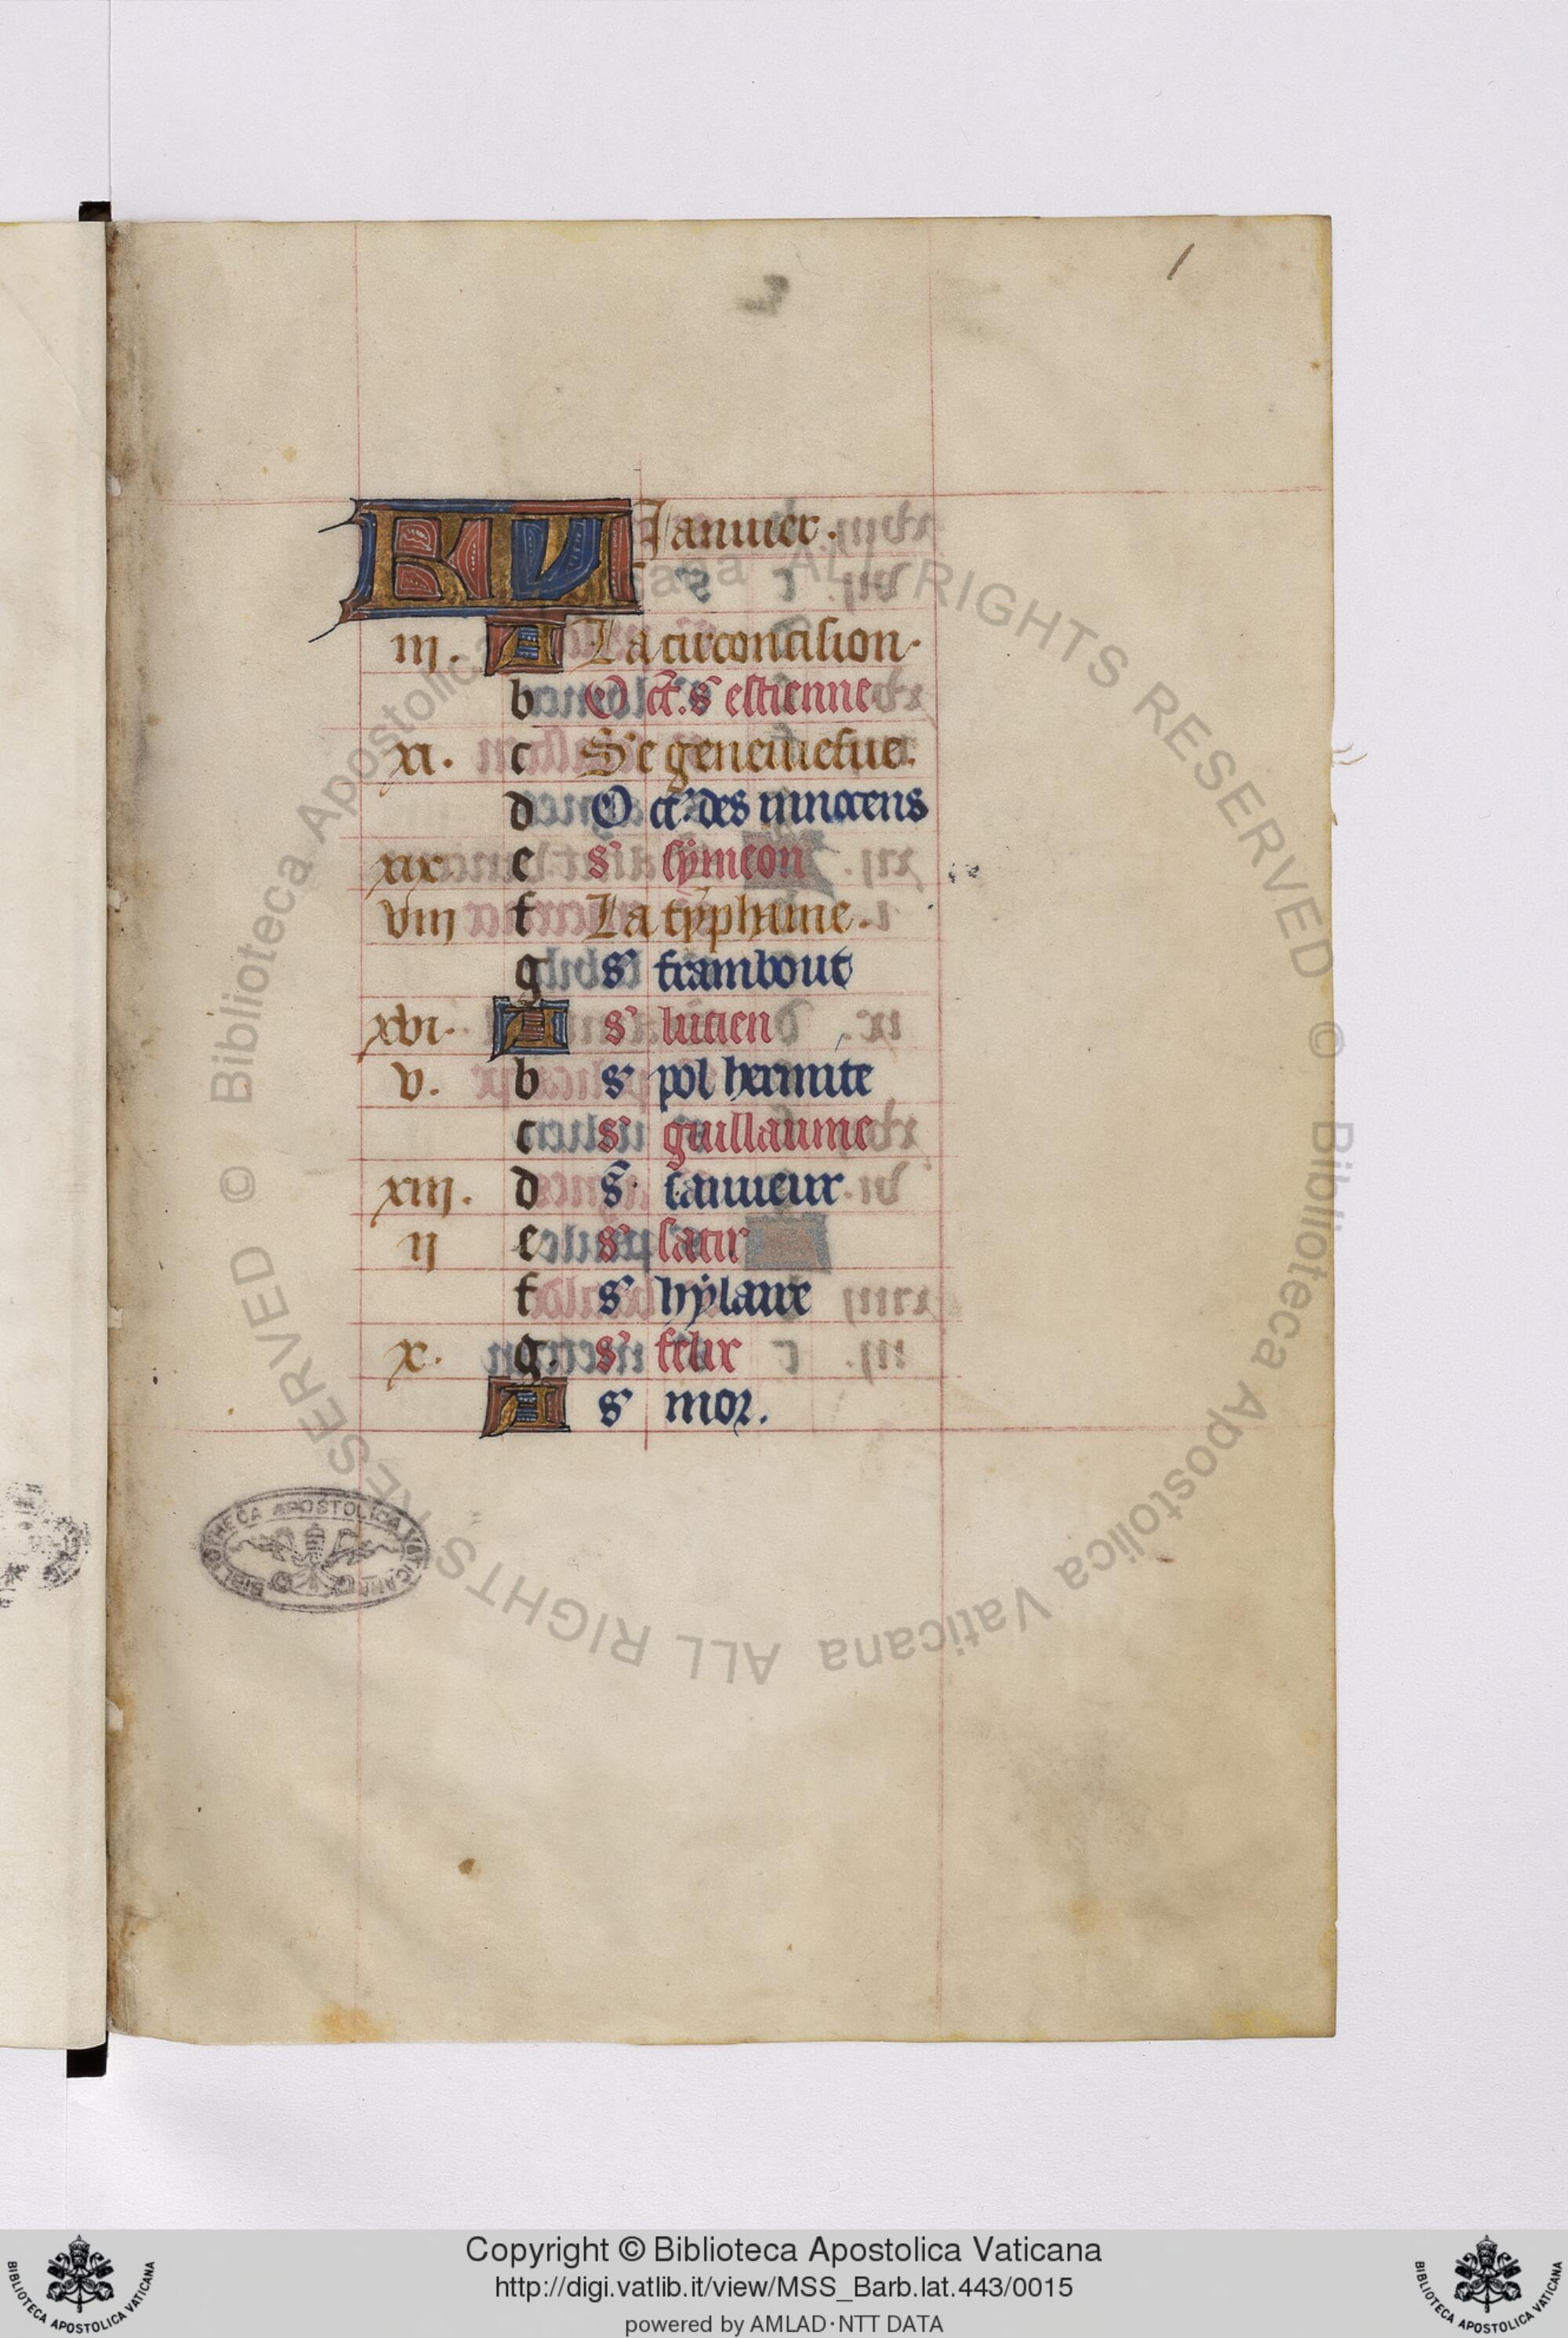 1
KL Januier.
iii. A La circoncision.
b Oct. s estienne
xi. c Se geneuiefue.
d Oct. des innocens
xix e s symeon
viii f La typhaine.
g s frambout
xvi. A s lucien
v. b s pol hermite
c s guillaume
xiii. d s. sauueur
ii e s satir
f s hylaire
x. g. s felix
A s mor.
BIBLIOTHECA APOSTOLICA VATICANA
© Biblioteca Apostolica Vaticana ALL RIGHTS RESERVED
© Biblioteca Apostolica Vaticana ALL RIGHTS RESERVED
Copyright © Biblioteca Apostolica Vaticana
http://digi.vatlib.it/view/MSS_Barb.lat.443/0015
powered by AMLAD·NTT DATA
BIBLIOTECA APOSTOLICA VATICANA
BIBLIOTECA APOSTOLICA VATICANA